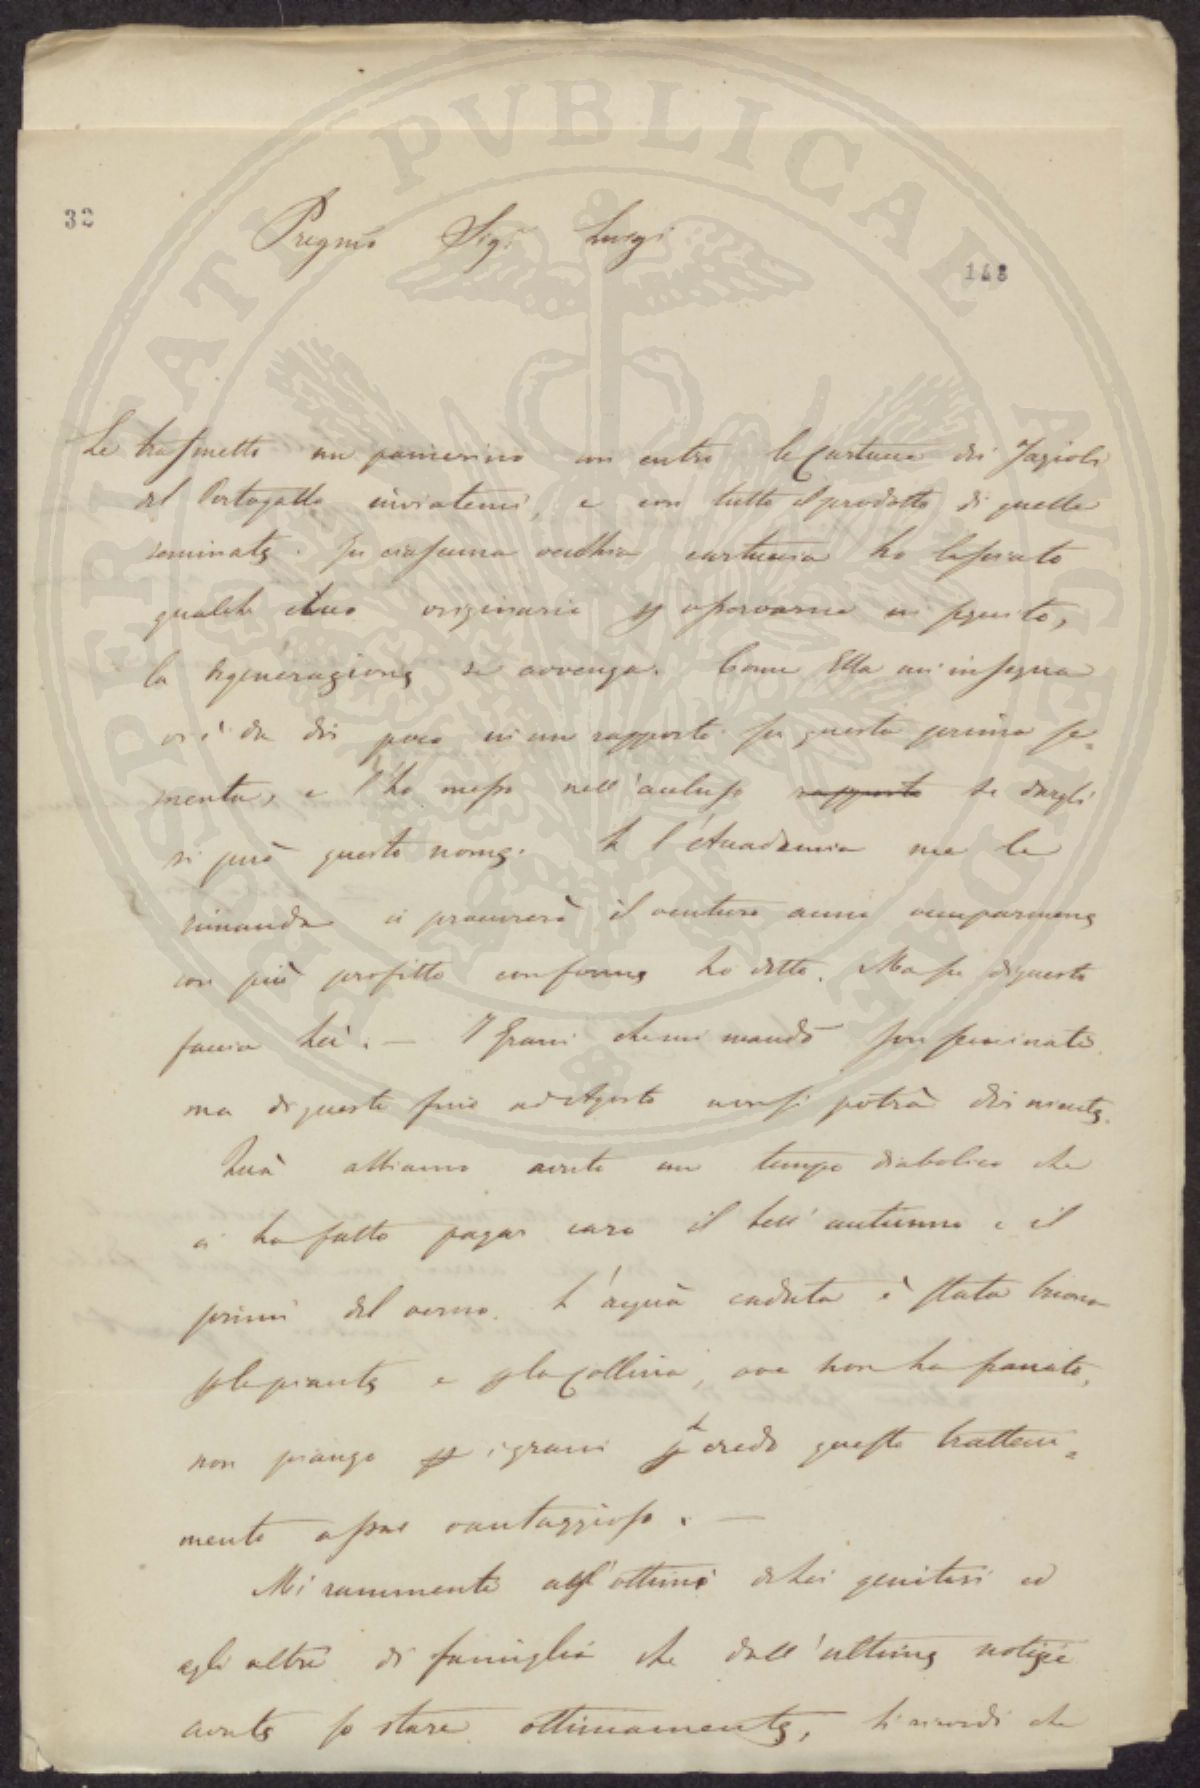 32
Pregmo Sigr Luigi
148
Le trasmetto un panierino con entro le Cartucce dei Fagioli
del Portogallo inviatemi, e con tutto il prodotto di quelle
seminate. In ciascuna vecchia cartuccia ho lasciato
qualche seme originario p osservarne in seguito,
la degenerazione se avvenga. Come Ella mi insegna
vi è da dir poco in un rapporto su questa prima se=
menta, e l'ho messo nell'accluso rapporto se dargli
si può questo nome. Se l'Accademia me le
rimanda si procurerà il venturo anno occuparmene
con più profitto conforme ho detto. Ma su di questo
faccia Lei. — I Grani che mi mandò son seminati
ma di questi fino ad Agosto non si potrà dir niente.
Quà abbiamo avuto un tempo diabolico che
ci ha fatto pagar caro il bell'autunno e il
primi del verno. L'acqua caduta è stata buona
p le piante e p la Collina, ove non ha franato,
non piango p i grani p che credo questo tratteni=
mento assai vantaggioso. —
Mi rammenti agl'ottimi di Lei genitori ed
agli altri di famiglia che dall'ultime notizie
avute so stare ottimamente, si ricordi che
PERITATI PUBLICAE AUGENDAE
PROSPERITATI